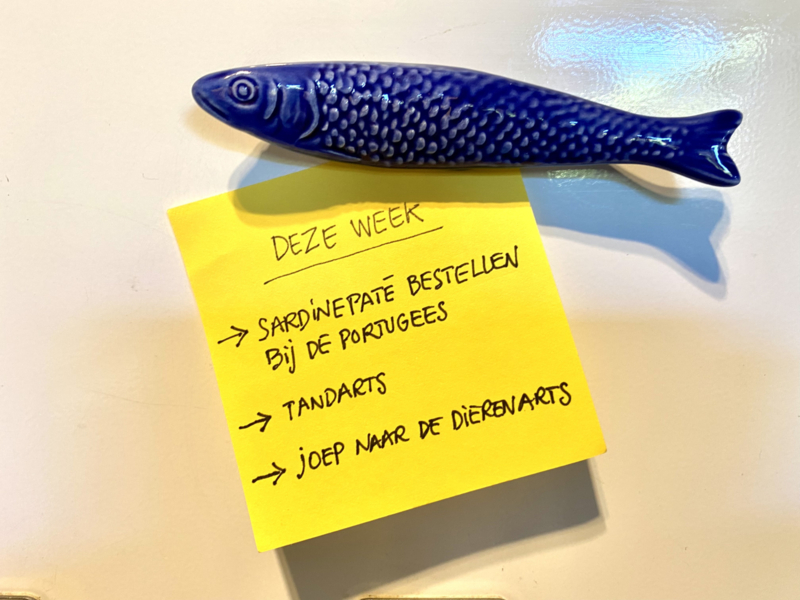 DEZE WEEK
→ SARDINEPATÉ BESTELLEN
Bij DE PORTUGEES
→ TANDARTS
→ jOEP NAAR DE DIERENARTS